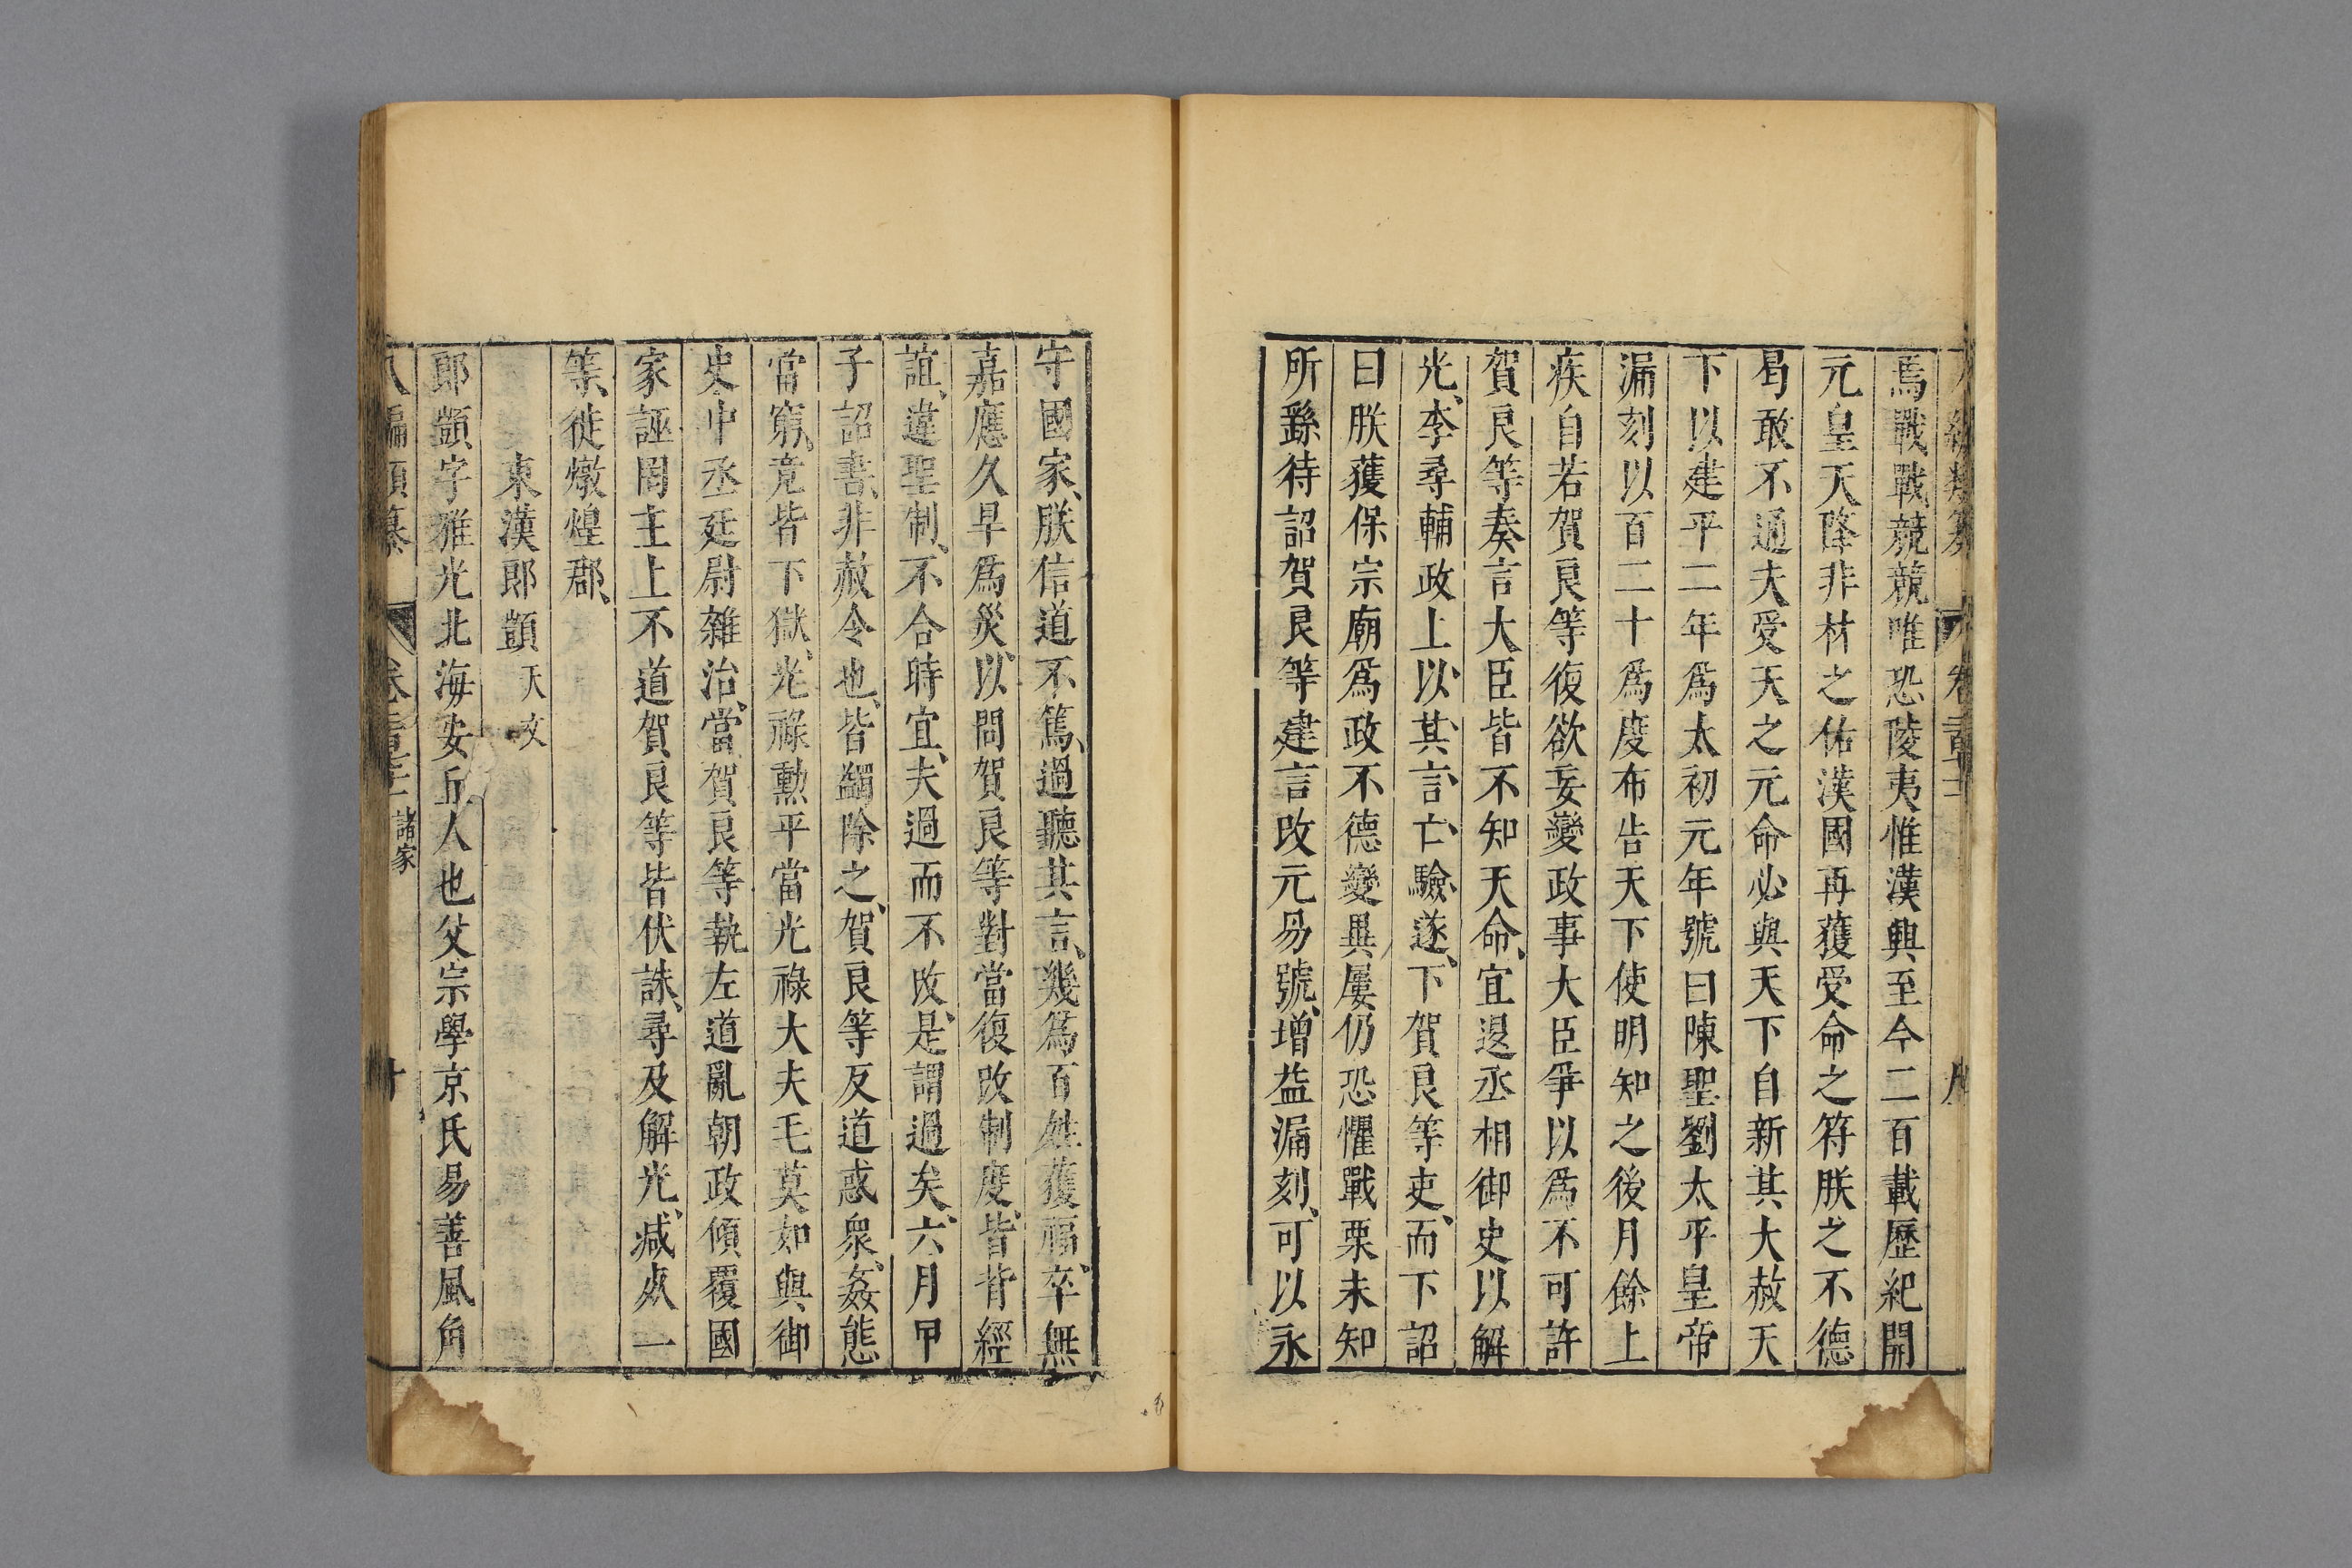 焉戰戰兢兢唯恐陵夷惟漢興至今二百載歷紀開
元皇天降非材之佑漢國再獲受命之符朕之不德
曷敢不通夫受天之元命必與天下自新其大赦天
下以建平二年爲太初元年號曰陳聖劉太平皇帝
漏刻以百二十爲度布告天下使明知之後月餘上
疾自若賀良等復欲妄變政事大臣爭以爲不可許
賀良等奏言大臣皆不知天命、宜退丞相御史以解
光、李尋輔政上以、其、言、亡、驗、遂、下賀良等吏、而下詔
曰朕獲保宗廟爲政不德變異屢仍恐懼戰栗未知
所繇待詔賀良等建言改元易號、增益漏刻、可以永
守國家、朕信道不篤、過聽其言、幾爲百姓獲福、卒無
嘉應久旱爲災、以問賀良等對當復改制度、皆背經
誼、違聖制、不合時宜、夫過而不改、是謂過矣、六月甲
子詔書、非赦令也、皆蠲除之、賀良等反道惑衆、姦態
當窮。竟皆下獄、光祿勲平當光祿大夫毛莫如與御
史中丞廷尉雜治、當賀良等執左道亂朝政傾覆國
家誣罔主上不道賀良等皆伏誅、尋及解光、减死一
等、徙燉煌郡、
東漢郎顗 天文
郎顗字雅光北海安丘人也父宗學京氏易善風角
八編類纂 卷 諸家 十